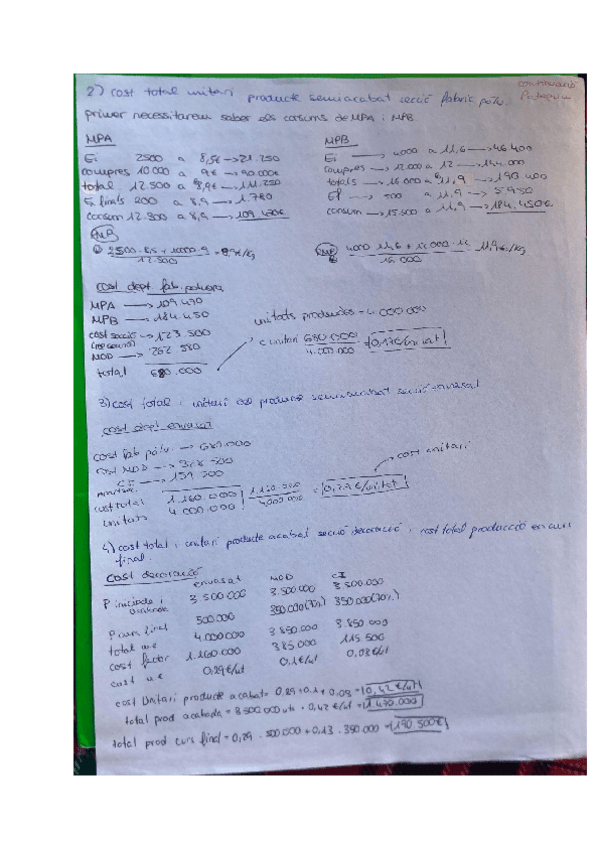 2) cost total unitari producte semiacabat secció fabric pólv.
primer necessitarem saber els consums de MPA i MPB.
MPA
Ei 2500 a 8,5€ → 21.250
compres 10.000 a 9€ → 90.000€
total 12.500 a 8,9€ → 111.250
Ex finals 200 a 8,9 → 1.780
consum 12.300 a 8,9 → 109.470€
2500·8,5 + 10000·9 / 12.500 = 8,9€/Kg
MPB
Ei → 4000 a 11,6 → 46400
compres → 12.000 a 12 → 144.000
totals → 16.000 a 11,9 → 190.400
Ef → 500 a 11,9 → 5950
consum → 15.500 a 11,9 → 184.450€
4000·11,6 + 12.000·12 / 16.000 11,9€/kg
cost dept fab. pólvora
MPA → 109.470
MPB → 184.450
cost secció → 123.500
MOD → 262.580
total 680.000
unitats produides = 4.000.000
c unitari 680.000 / 4.000.000 = 0,17€/unitat
3) cost total i unitari del producte semiacabat secció envasat
cost dept envasat
cost fab pólv. → 680.000
cost MOD → 328.300
→ 151.700
cost total 1.160.000
unitats 4.000.000
1.160.000 / 4.000.000 = 0,29€/unitat → cost unitari
4) cost total i unitari producte acabat secció decoració i cost total producció en curs
final.
cost decoració
envasat MOD CI
P iniciada i acabada 3.500.000 3.500.000 3.500.000
P curs final 500.000 350.000 (70%) 350.000 (70%)
total ue 4.000.000 3.850.000 3.850.000
cost factor 1.160.000 385.000 115.500
cost ue 0,29€/ut 0,1€/ut 0,03€/ut
cost Unitari producte acabat = 0,29 + 0,1 + 0,03 = 0,42€/ut
total prod acabada = 3.500.000 uts · 0,42€/ut = 1.470.000
total prod curs final = 0,29 · 500.000 + 0,13 · 350.000 = 190.500€